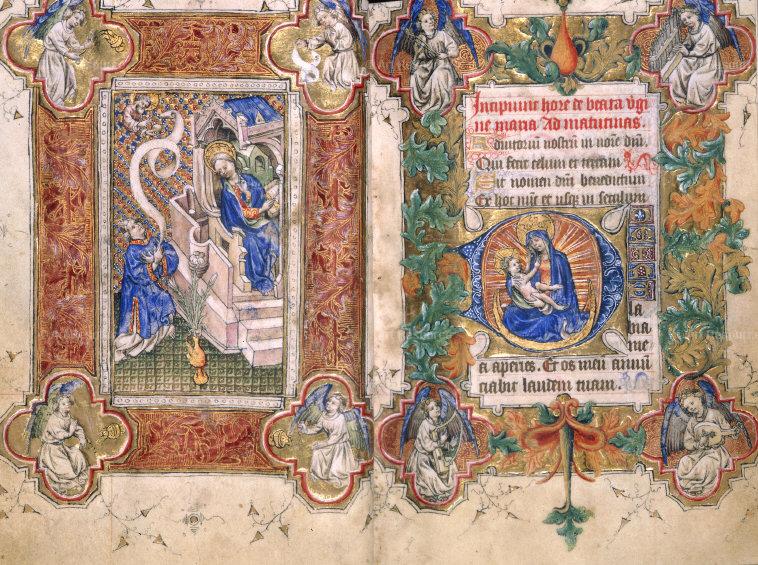 Incipiunt hore de beata vgi
ne maria Ad matutinas.
Adiutoriū nostrū in noīe dnī.
Qui fecit celum et terram
Sit nomen dnī benedictum
Ex hoc nūc et usq; in seculum
D
la
bia
me
a aperies. Et os meū annūn
ciabit laudem tuam.